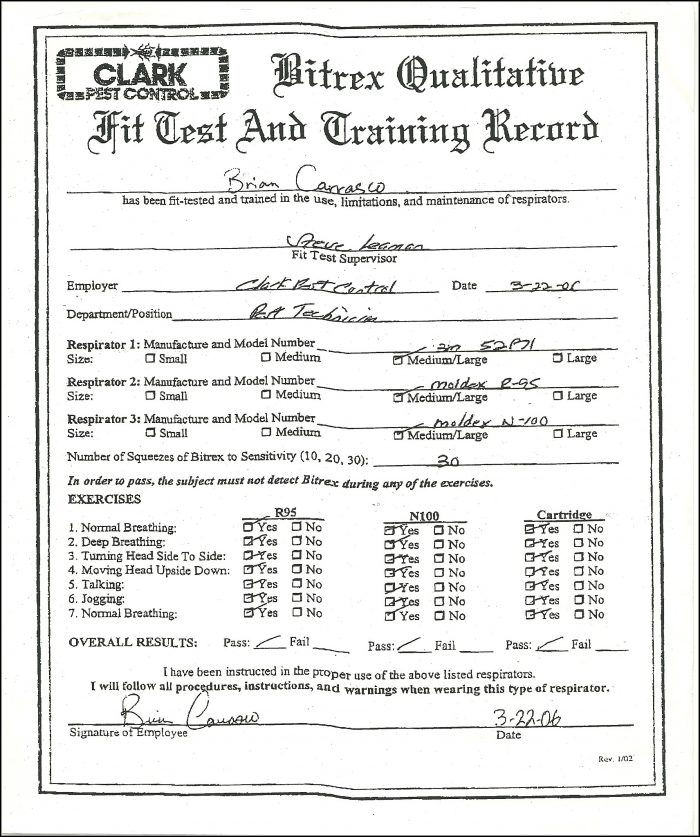 CLARK
PEST CONTROL
Bitrex Qualitative
Fit Test And Training Record
Brian Carrasco
has been fit-tested and trained in the use, limitations, and maintenance of respirators.
Steve Leaman
Fit Test Supervisor
Employer Clark Pest Control Date 3-22-06
Department/Position Pest Technician
Respirator 1: Manufacture and Model Number 3m 52P71
Size: ☐ Small ☐ Medium ☑ Medium/Large ☐ Large
Respirator 2: Manufacture and Model Number moldex R-95
Size: ☐ Small ☐ Medium ☑ Medium/Large ☐ Large
Respirator 3: Manufacture and Model Number moldex N-100
Size: ☐ Small ☐ Medium ☑ Medium/Large ☐ Large
Number of Squeezes of Bitrex to Sensitivity (10, 20, 30): 30
In order to pass, the subject must not detect Bitrex during any of the exercises.
EXERCISES
R95 N100 Cartridge
1. Normal Breathing: ☑ Yes ☐ No ☑ Yes ☐ No ☑ Yes ☐ No
2. Deep Breathing: ☑ Yes ☐ No ☑ Yes ☐ No ☑ Yes ☐ No
3. Turning Head Side To Side: ☑ Yes ☐ No ☑ Yes ☐ No ☑ Yes ☐ No
4. Moving Head Upside Down: ☑ Yes ☐ No ☑ Yes ☐ No ☑ Yes ☐ No
5. Talking: ☑ Yes ☐ No ☑ Yes ☐ No ☑ Yes ☐ No
6. Jogging: ☑ Yes ☐ No ☑ Yes ☐ No ☑ Yes ☐ No
7. Normal Breathing: ☑ Yes ☐ No ☑ Yes ☐ No ☑ Yes ☐ No
OVERALL RESULTS: Pass: ✓ Fail Pass: ✓ Fail Pass: ✓ Fail
I have been instructed in the proper use of the above listed respirators.
I will follow all procedures, instructions, and warnings when wearing this type of respirator.
Brian Carrasco 3-22-06
Signature of Employee Date
Rev. 1/02